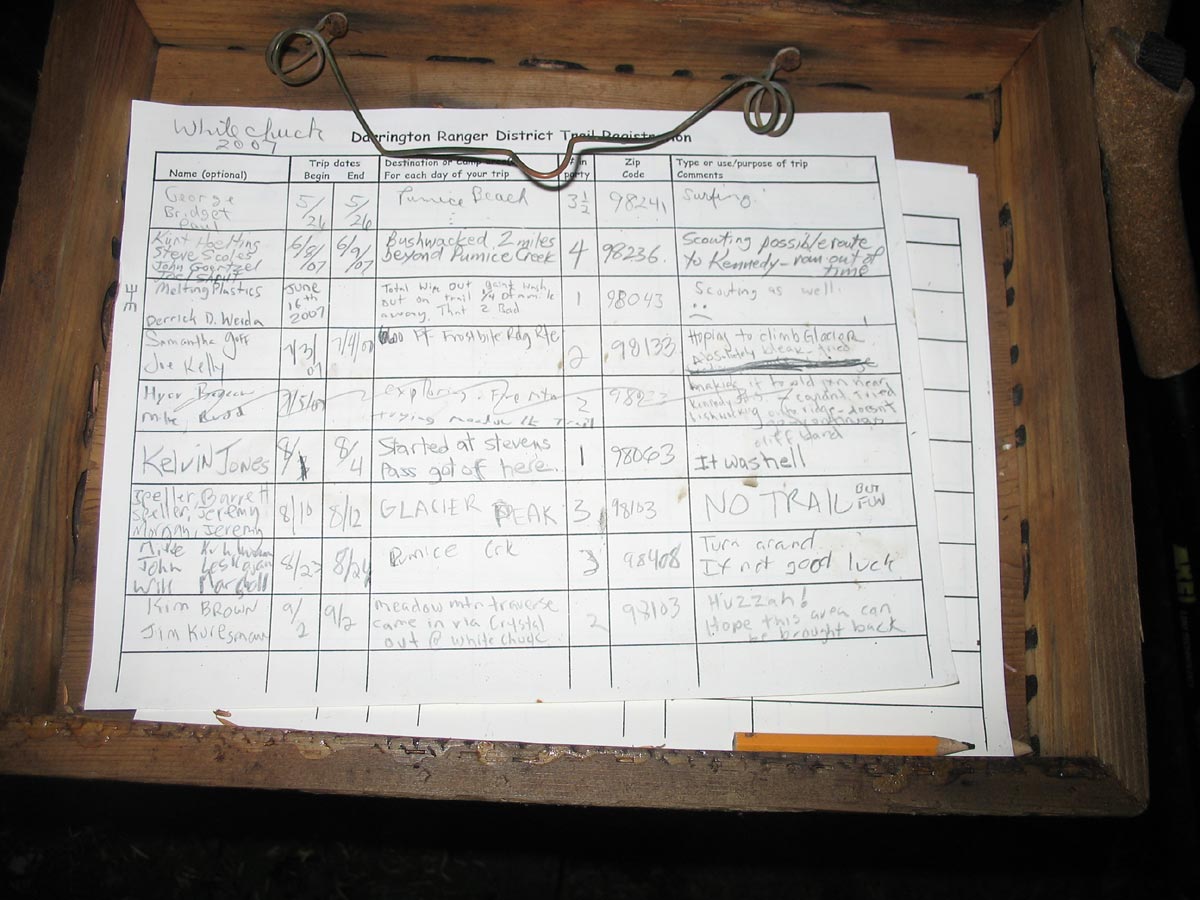 White chuck
2007
Darrington Ranger District Trail Registration
Name (optional)
Trip dates
Begin End
Destination or camp
For each day of your trip
# in
party
Zip
Code
Type or use/purpose of trip
Comments
George
Bridget
Paul
5/
26
5/
26
Pumice Beach
3 1/2
98241
Surfing
Kurt
Steve Scoles
John Goertzel
6/8/07
6/9/07
Bushwacked 2 miles
beyond Pumice Creek
4
98236.
Scouting possible route
to Kennedy - ran out of
time
Melting Plastics
Derrick D. Weida
June
16th
2007
Total Wipe out giant wash
out on trail 1/4 of a mile
away. That 2 Bad
1
98043
Scouting as well.
Samantha Goff
Joe Kelly
7/3/
07
7/4/07
Pt Frostbite Rdg Rte
2
98133
Hoping to climb Glacier
Absolutely bleak
Mike
7/5/07
exploring Fire Mtn
Trail
2
making it to old
Kennedy
ridge - doesn't
Kelvin Jones
8/1
8/
4
Started at stevens
Pass got off here.
1
98063
cliff band
It was hell
Speller, Barrett
Speller, Jeremy
Morgan, Jeremy
8/10
8/12
GLACIER PEAK
3
98103
NO TRAIL BUT
FUN
Mike
John
Will Marshall
8/23
8/24
Pumice Crk
3
98408
Turn around
If not good luck
Kim BROWN
Jim Kuresman
9/
2
9/2
meadow mtn traverse
came in via Crystal
out @ white chuck
2
98103
Huzzah!
Hope this area can
be brought back